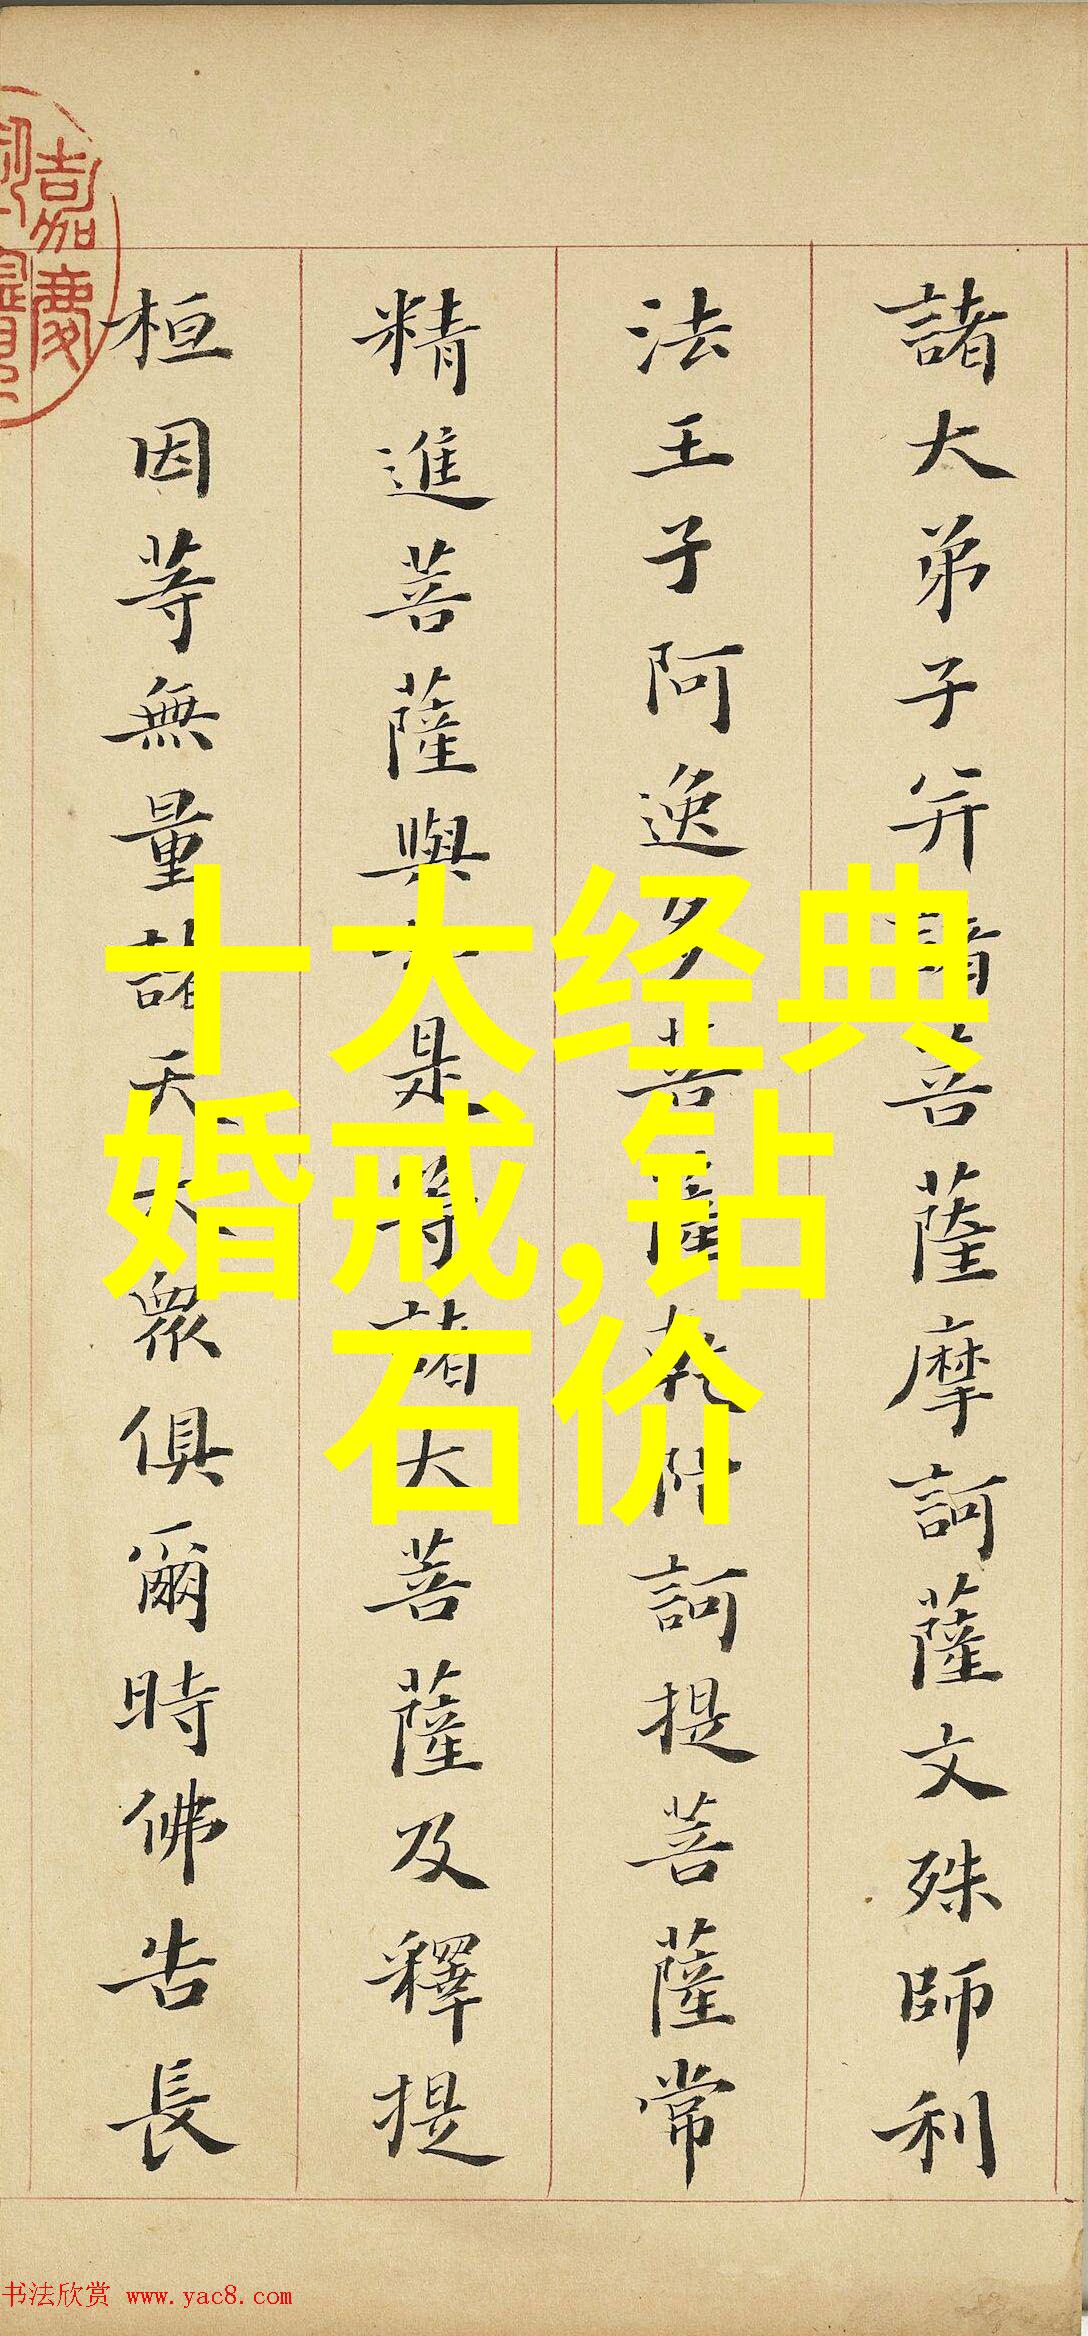 諸大弟子并諸菩薩摩訶薩文殊師利
法王子阿逸多菩薩乾陀訶提菩薩常
精進菩薩與如是等諸大菩薩及釋提
桓因等無量諸天大眾俱爾時佛告長
嘉慶
十大经典
婚戒,钻
石价
书法欣赏 www.yac8.com